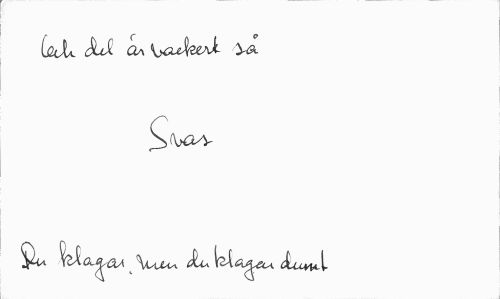 och det är vackert så
Svar
Du klagar, men du klagar dumt